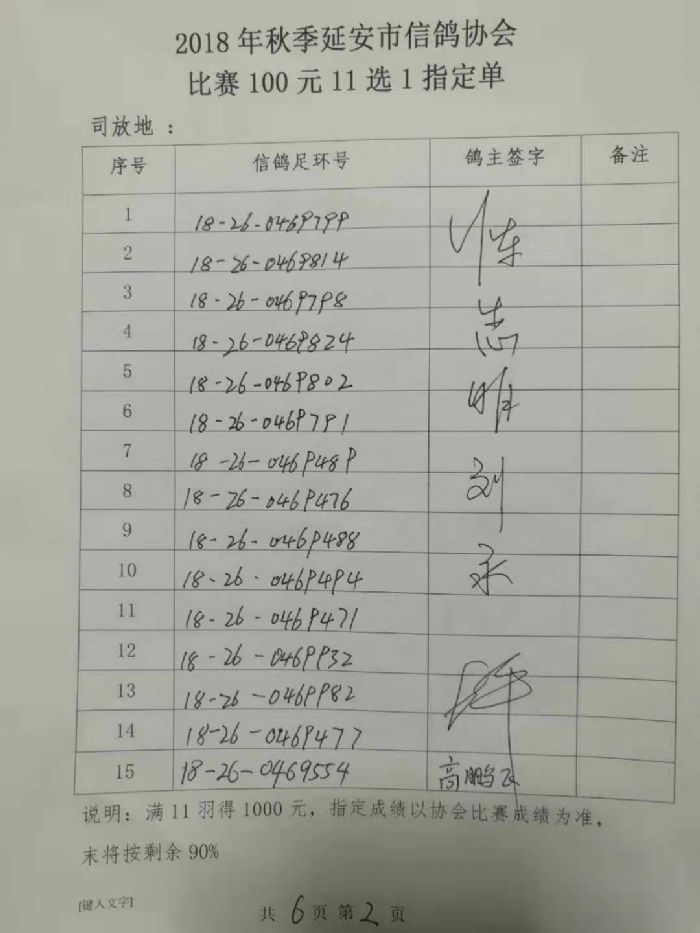 2018 年秋季延安市信鸽协会
比赛 100 元 11 选 1 指定单
司放地 ：
序号 信鸽足环号 鸽主签字 备注
1 18-26-0469799
2 18-26-0469814
3 18-26-0469798
4 18-26-0469824 志
5 18-26-0469802 明
6 18-26-0469791
7 18-26-0469489
8 18-26-0469476 刘
9 18-26-0469488
10 18-26-0469494 永
11 18-26-0469471
12 18-26-0469932
13 18-26-0469982
14 18-26-0469477
15 18-26-0469554 高鹏飞
说明：满 11 羽得 1000 元，指定成绩以协会比赛成绩为准，
末将按剩余 90%
[键入文字]
共 6 页 第 2 页